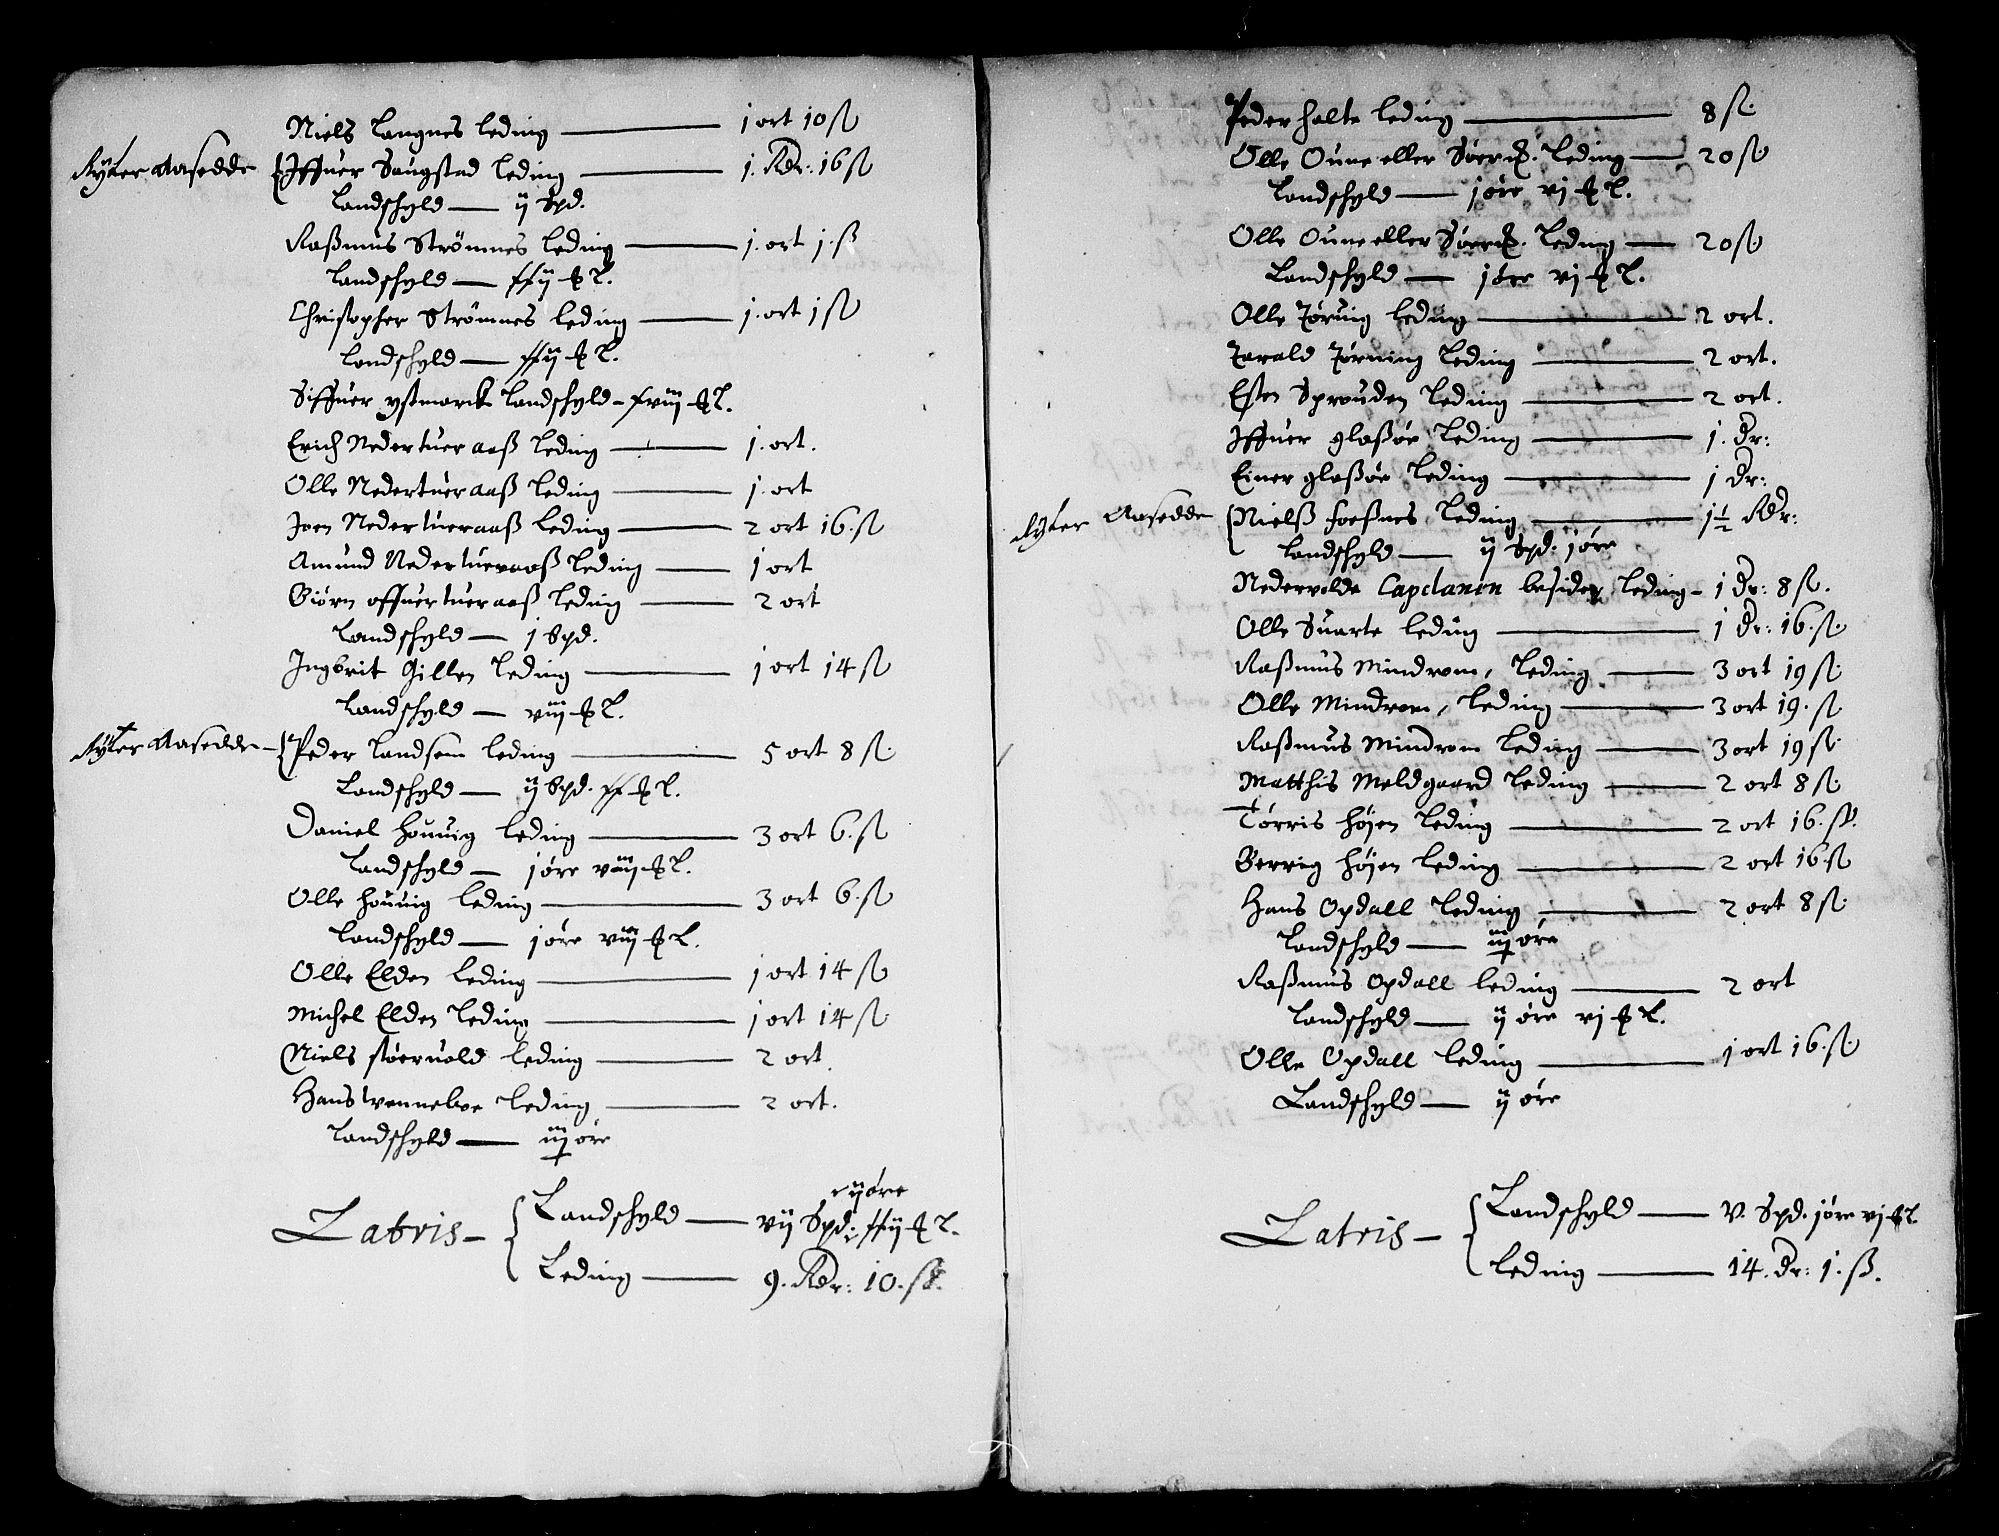 Niels Langnes Leding — 1 ort 10 ß
Ryter Aasedde { Iffuer Saugstad Leding — 1. Rdr: 16 ß
Landschyld — ij Spd.
Raßmus Strömnes Leding — 1. ort 1. ß
Landschyld — xxij ℔ L.
Christopher Strömnes Leding — 1. ort 1 ß
Landschyld — xxij ℔ L.
Siffuer ystmarck Landschyld — xviij ℔ L.
Erich Nedertueraaß Leding — 1. ort.
Olle Nedertueraaß Leding — 1. ort
Joen Nedertueraaß Leding — 2 ort 16. ß
Amund Nedertueraaß Leding — 1 ort
Giörn offuertueraaß Leding — 2 ort
Landschyld — j Spd.
Ingbrit Gillen Leding — 1 ort 14 ß
Landschyld — viij ℔ L.
Ryter Aasedde — { Peder Landsem Leding — 5 ort 8 ß.
Landschyld — ij Spd. xx ℔ L.
Daniel Houuig Leding — 3 ort 6. ß
Landschyld — j øre viij ℔ L.
Olle Houuig Leding — 3 ort 6. ß
Landschyld — j øre viij ℔ L.
Olle Elden Leding — 1 ort 14 ß
Michel Elden Leding — 1 ort 14 ß
Niels støeruold Leding — 2 ort
Hans Vennelue Leding — 2 ort.
Landschyld — iij øre
Latris — { Landschyld — vij Spd: ij øre xxij ℔ L.
Leding — 9. Rdr: 10. ß.
Peder Halte Leding — 8 ß.
Olle Oune eller Søer Leding — 20 ß.
Landschyld — j øre vj ℔ L.
Olle Oune eller Søer Leding — 20 ß.
Landschyld — j øre vj ℔ L.
Olle Jøruig Leding — 2 ort.
Jarald Jørning Leding — 2 ort.
Esten Sprouden Leding — 2 ort.
Iffuer glaßøe Leding — 1. Dr:
Einer glaßøe Leding — 1 Dr:
Ryter Aasedde { Nielß Foeßnes Leding — 1½ Rdr:
Landschyld — ij Spd: j øre
Nedervolde Capelanen besider Leding — 1 Dr: 8 ß.
Olle Suarte Leding — 1 Dr: 16. ß.
Raßmus Mindrom, Leding — 3 ort 19 ß.
Olle Mindrom, Leding — 3 ort 19. ß
Raßmus Mindrom Leding — 3 ort 19 ß.
Matthis Meldgaard Leding — 2 ort 8 ß.
Törris Højen Leding — 2 ort 16. ß.
Gerrig Høien Leding — 2 ort 16 ß
Hans Opdall Leding — 2 ort 8 ß.
Landschyld — iij øre
Raßmus Opdall Leding — 2 ort
Landschyld — ij øre vj ℔ L.
Olle Opdall Leding — 1 ort 16. ß.
Landschyld — ij øre
Latris — { Landschyld — V. Spd. j øre vj ℔ L
Leding — 14. Dr: 1. ß.